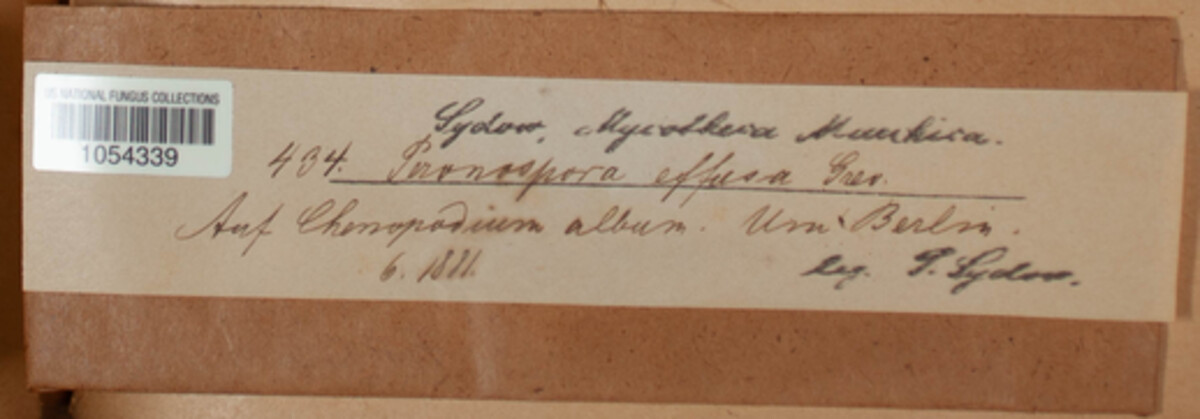 US NATIONAL FUNGUS COLLECTIONS
1054339
Sydow, Mycotheca Marchica.
434. Peronospora effusa Grev.
Auf Chenopodium album. Um Berlin.
6. 1881.
leg. P. Sydow.